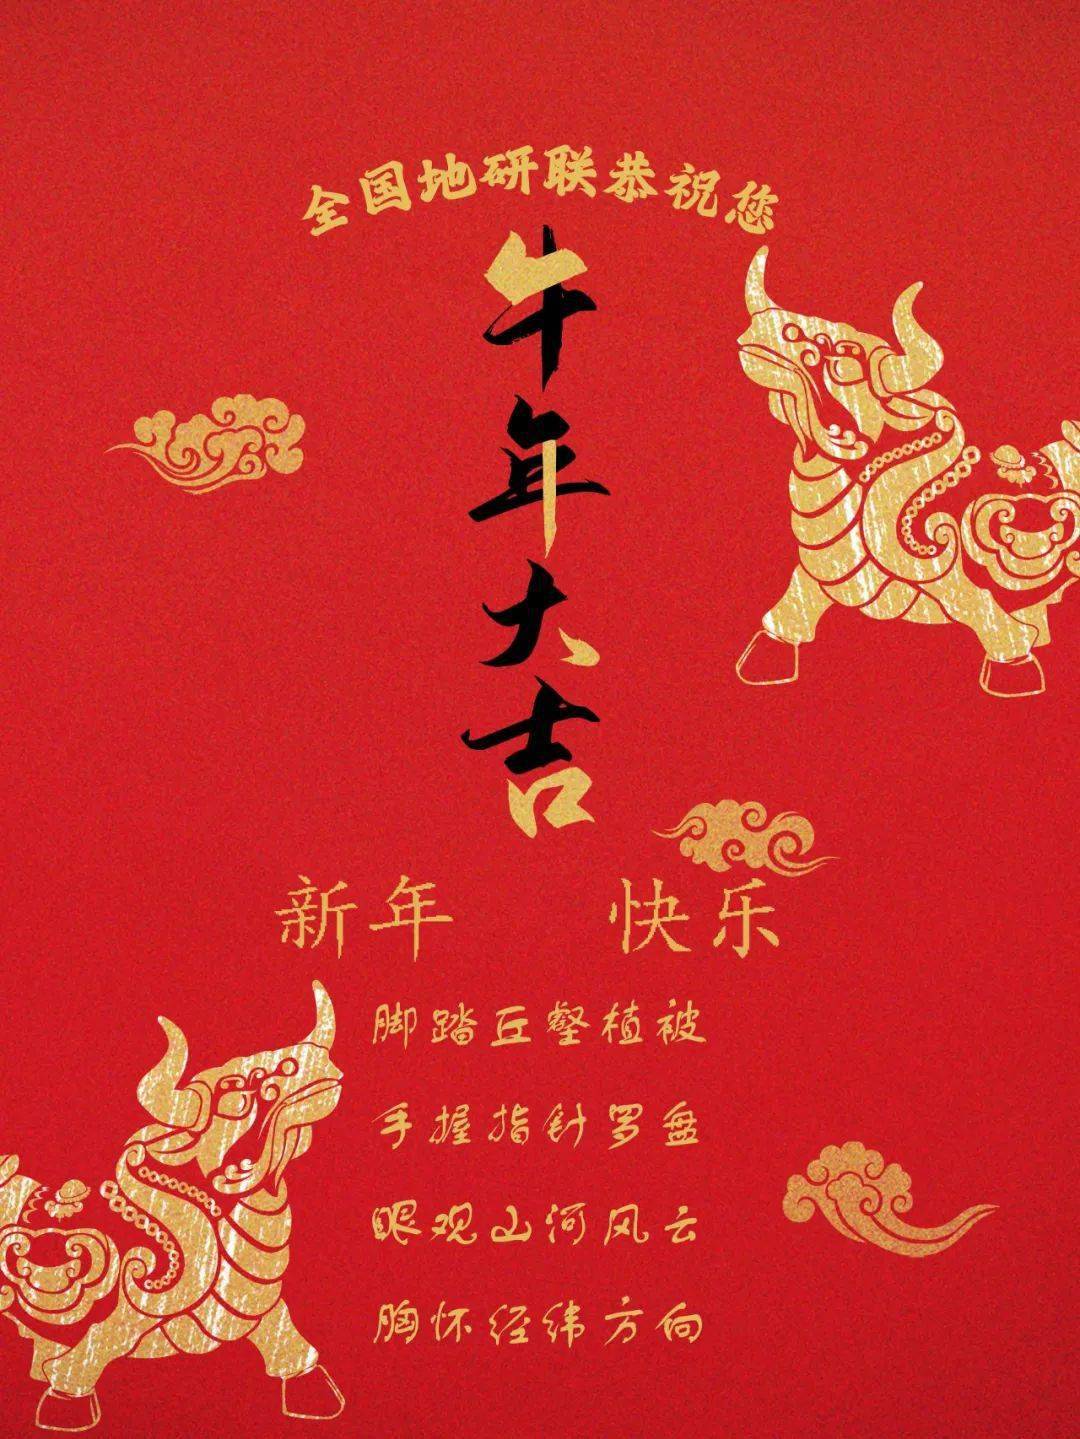 全国地研联恭祝您
牛年大吉
新年 快乐
脚踏丘壑植被
手握指针罗盘
眼观山河风云
胸怀经纬方向